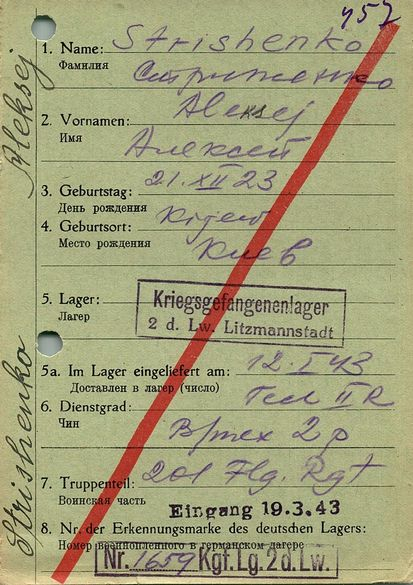 457
1. Name: Strishenko
Фамилия Стриженко
2. Vornamen: Aleksej
Имя Алексей
3. Geburtstag: 21.XII 23
День рождения
4. Geburtsort:
Место рождения Киев
5. Lager: Kriegsgefangenenlager
Лагерь 2 d. Lw. Litzmannstadt
5a. Im Lager eingeliefert am: 12.I 43
Доставлен в лагер (число)
6. Dienstgrad: Tech II R
Чин В/тех 2 р
7. Truppenteil: 201 Flg. Rgt
Воинская часть
Eingang 19.3.43
8. Nr. der Erkennungsmarke des deutschen Lagers:
Номер военнопленного в германском лагере
Nr. 1659 Kgf. Lg. 2 d. Lw.
Strishenko Aleksej